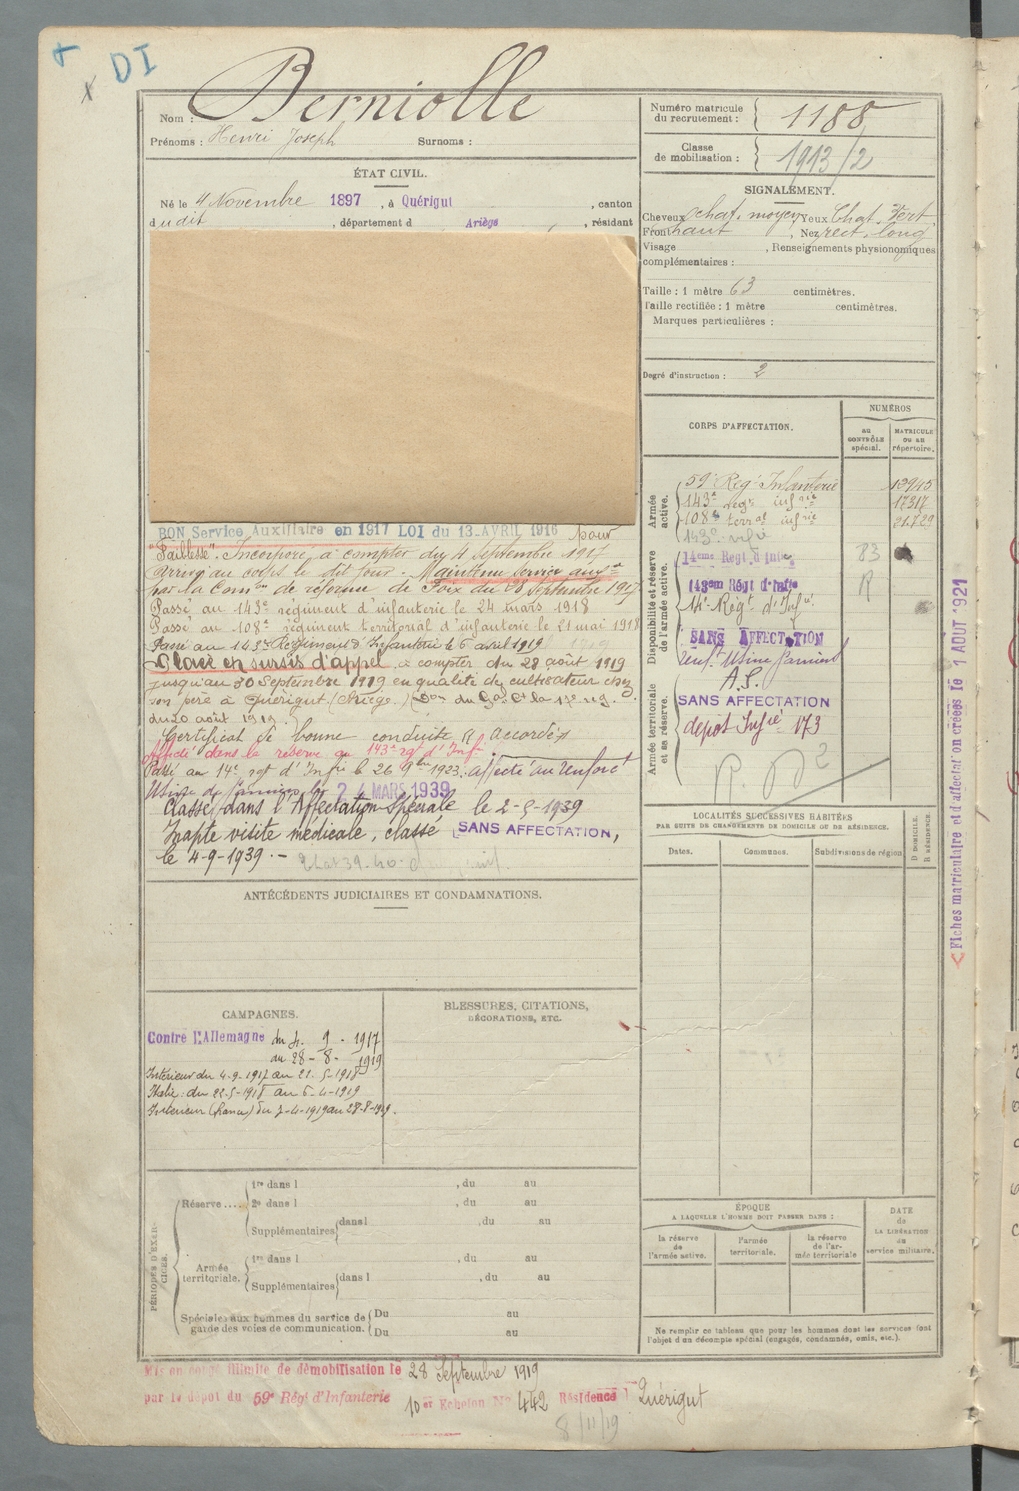 DI
Nom : Berniolle
Prénoms : Henri Joseph Surnoms :
ÉTAT CIVIL.
Né le 4 Novembre 1897, à Quérigut, canton
dudit, département d Ariège, résidant
BON Service Auxiliaire en 1917 LOI du 13 AVRIL 1916 pour
"Faiblesse". Incorporé à compter du 4 Septembre 1917
Arrivé au corps le dit jour. Maintenu service auxre
par la Comon de réforme de Foix du 28 Septembre 1917
Passé au 143e régiment d'infanterie le 24 mars 1918
Passé au 108e régiment territorial d'infanterie le 21 mai 1918
Passé au 143e Régiment d'Infanterie le 6 avril 1919
Placé en sursis d'appel à compter du 28 août 1919
jusqu'au 30 Septembre 1919 en qualité de cultivateur chez
son père à Quérigut (Ariège)
du 20 août 1919.
Certificat de bonne conduite "Accordé"
Affecté dans la réserve au 143e rgt d'Inf
Passé au 14e rgt d'Infie le 26 9bre 1923. affecté au renfort
Usine de Pamiers le 24 MARS 1939
Classé dans l'Affectation Spéciale le 2-9-1939
Inapte visite médicale, classé SANS AFFECTATION,
le 4-9-1939.-
ANTÉCÉDENTS JUDICIAIRES ET CONDAMNATIONS.
CAMPAGNES.
Contre l'Allemagne du 4. 9. 1917
au 28-8-1919
Intérieur du 4-9-1917 au 21-5-1918
Italie : du 22-5-1918 au 6-4-1919
Intérieur (France) du 7-4-1919 au 28-8-1919.
BLESSURES, CITATIONS,
DÉCORATIONS, ETC.
PÉRIODES D'EXERCICES.
Réserve....
1re dans l , du au
2e dans l , du au
Supplémentaires dans l , du au
Armée
territoriale.
1re dans l , du au
Supplémentaires dans l , du au
Spéciales aux hommes du service de
garde des voies de communication.
Du au
Du au
Mis en congé illimité de démobilisation le 28 Septembre 1919
par le dépôt du 59e Régt d'Infanterie 10e Echelon No 442 Résidence Quérigut
8/11/19
Numéro matricule
du recrutement : 1188
Classe
de mobilisation : 1913/2
SIGNALEMENT.
Cheveux chat. moyen Yeux Chat. Vert
Front haut, Nez rect. long
Visage , Renseignements physionomiques
complémentaires :
Taille : 1 mètre 63 centimètres.
Taille rectifiée : 1 mètre centimètres.
Marques particulières :
Degré d'instruction : 2
CORPS D'AFFECTATION.
NUMÉROS
au
CONTRÔLE
spécial.
MATRICULE
OU AU
répertoire.
Armée
active.
59e Régt Infanterie
143e regt infrie 17317
108e terral infrie 21.729
143e
83
Disponibilité et réserve
de l'armée active.
14eme Regt. d'Infie
143em Régt d'Infie R
14e Régt d'Infie
SANS AFFECTATION
Renft Usine Pamiers
Armée territoriale
et sa réserve.
A.S.
SANS AFFECTATION
depot Infie 173
LOCALITÉS SUCCESSIVES HABITÉES
PAR SUITE DE CHANGEMENTS DE DOMICILE OU DE RÉSIDENCE.
Dates.
Communes.
Subdivisions de région
D DOMICILE.
R RÉSIDENCE.
ÉPOQUE
A LAQUELLE L'HOMME DOIT PASSER DANS :
la réserve
de
l'armée active.
l'armée
territoriale.
la réserve
de l'ar-
mée territoriale
DATE
de
LA LIBÉRATION
du
service militaire.
Ne remplir ce tableau que pour les hommes dont les services font
l'objet d'un décompte spécial (engagés, condamnés, omis, etc.).
Fiches matriculaire et d'affectation créées le 1 AOUT 1921